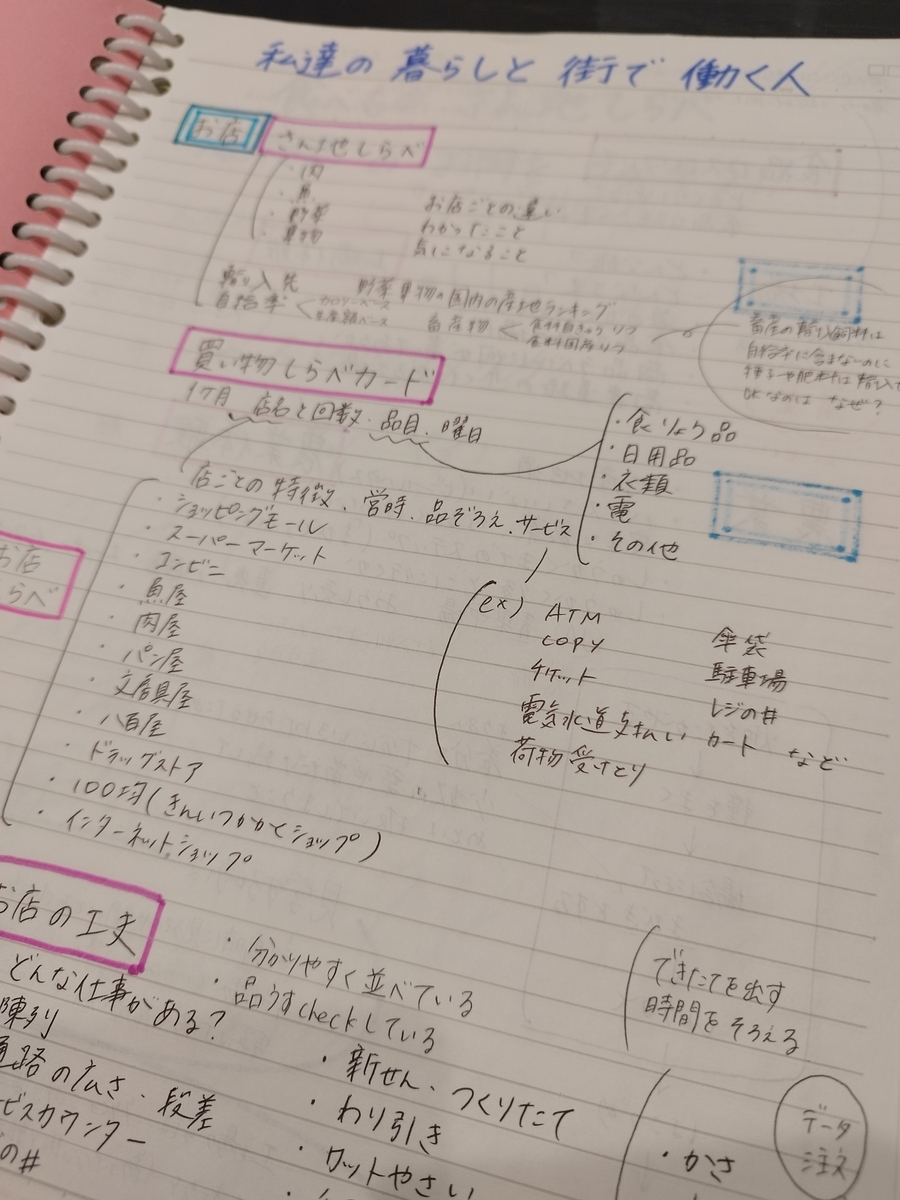 私達の 暮らしと 街で 働く人
お店 さんち しらべ
・肉
・魚
・野菜
・果物
お店ごとの違い
わかったこと
気になること
輸入先
野菜果物の国内の産地ランキング
自給率 カロリーベース
生産額ベース
畜産物 食料自きゅうりつ
食料国産りつ
畜産の輸入飼料は
自給率に含まないのに
種子や肥料は輸入で
OKなのは なぜ?
買い物しらべカード
1ヶ月、店名と回数、品目、曜日
・食りょう品
・日用品
・衣類
・電
・その他
店ごとの特徴、営時、品ぞろえ、サービス
お店
らべ
・ショッピングモール
・スーパーマーケット
・コンビニ
・魚屋
・肉屋
・パン屋
・文房具屋
・八百屋
・ドラッグストア
・100均(きんいつかかくショップ)
・インターネットショップ
ex) ATM
COPY
チケット
電気水道支払い
荷物受けとり
傘袋
駐車場
レジの#
カート など
お店の工夫
どんな仕事がある?
陳列
通路の広さ・段差
ビスカウンター
の#
・分かりやすく並べている
・品うすcheckしている
・新せん、つくりたて
・わり引き
・カットやさい
できたてを出す
時間をそろえる
・かさ
データ
注文